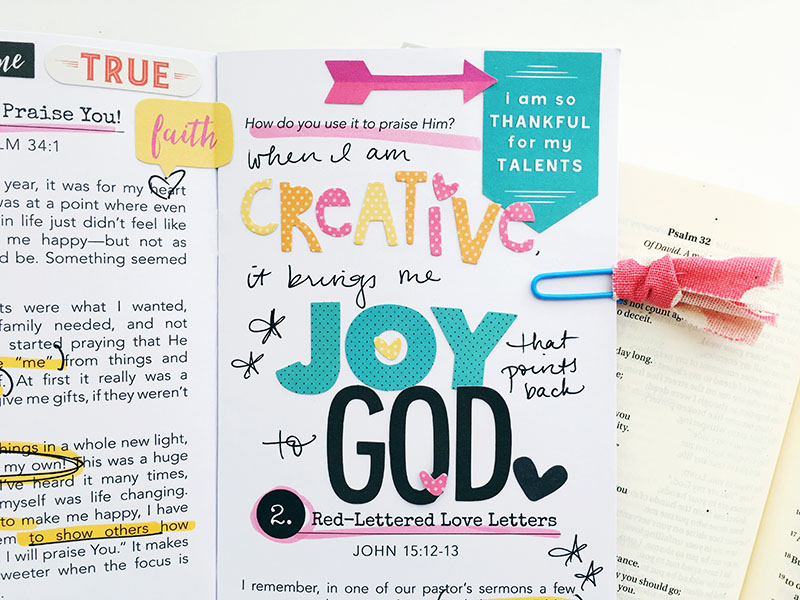 me
TRUE
Praise You!
faith
LM 34:1
year, it was for my heart
was at a point where even
in life just didn't feel like
me happy—but not as
d be. Something seemed
ts were what I wanted,
family needed, and not
started praying that He
"me" from things and
At first it really was a
give me gifts, if they weren't
hings in a whole new light,
my own! This was a huge
I've heard it many times,
myself was life changing.
to make me happy, I have
em to show others how
I will praise You." It makes
weeter when the focus is
i am so
THANKFUL
for my
TALENTS
How do you use it to praise Him?
when I am
CREATIVE,
it brings me
JOY
that
points
back
to GOD
2. Red-Lettered Love Letters
JOHN 15:12-13
I remember, in one of our pastor's sermons a few
Psalm 32
Of David. A
not count
deceit.
day long.
you
ity.
you
ance.
w you should go;
17
Bu
18
19 to